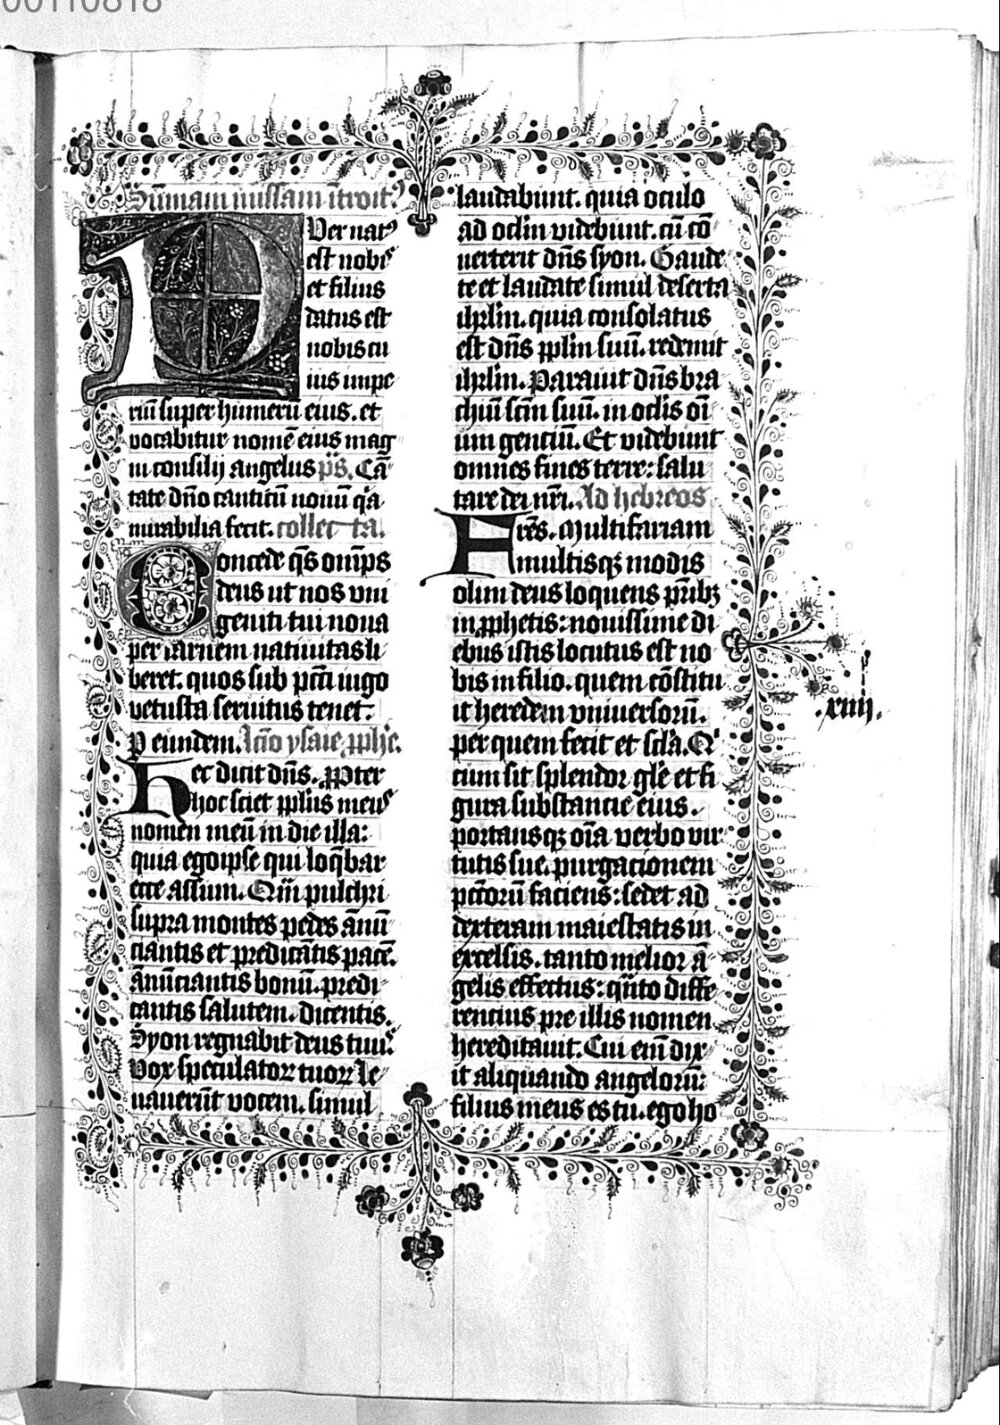 00110818
Sūmam missam ītroitꝰ
PVer natꝰ
est nobis
et filius
datus est
nobis cu
ius impe
riū super humerū eius. et
vocabitur nomē eius mag
ni consilij angelus ps̄. Cā
tate dn̄o canticū nouū q̄a
mirabilia fecit. collecta.
Concede q̄s om̄ps
deus ut nos vni
geniti tui noua
per carnem natiuitas li
beret. quos sub pctī iugo
vetusta seruitus tenet.
P eundem. lc̄io ysaie ꝓph̄e.
Hec dicit dn̄s. ꝓpter
hoc sciet pplūs meus
nomen meū in die illa:
quia ego ipse qui loq̄bar
ecce assum. Qm̄ pulchri
supra montes pedes ānū
ciantis et predicātis pacē.
Anūciantis bonū. predi
cantis salutem. dicentis.
Syon regnabit deus tuus.
Vox speculatoꝝ tuoꝝ le
uauerūt vocem. simul
laudabunt. quia oculo
ad oclm̄ videbunt. cū cō
uerterit dn̄s syon. Gaude
te et laudate simul deserta
ihrlm̄. quia consolatus
est dn̄s pplm̄ suū. redemit
ihrlm̄. Parauit dn̄s bra
chiū scm̄ suū. in oclis oī
um gentiū. Et videbunt
omnes fines terre: salu
tare dei nr̄i. Ad hebreos
Frēs. Multifariam
multisqꝫ modis
olim deus loquens pr̄ibꝫ
in ꝓphetis: nouissime di
ebus istis locutus est no
bis in filio. quem cōstitu
it heredem vniuersorū.
per quem fecit et scl̄a. Q
cium sit splendor gl̄e et fi
gura substancie eius.
portansqꝫ oīa verbo vir
tutis sue. purgacionem
pctōrū faciens: sedet ad
dexteram maiestatis in
excelsis. tanto melior ā
gelis effectus: q̄nto diffe
rencius pre illis nomen
hereditauit. Cui eīn dix
it aliquando angelorū:
filius meus es tu. ego ho
.xiiij.